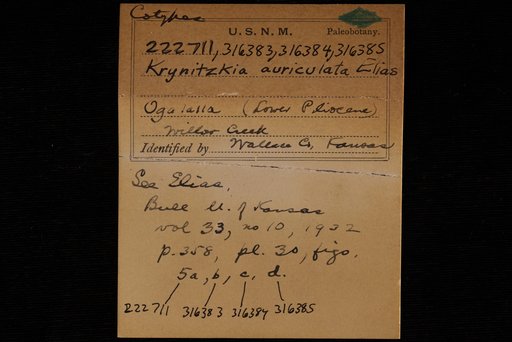 Cotypes
U.S.N.M.
Paleobotany.
222711, 316383, 316384, 316385
Krynitzkia auriculata Elias
Ogalalla (Lower Pliocene)
Willow Creek
Identified by Wallace Co, Kansas
See Elias,
Bull U. of Kansas
vol 33, no 10, 1932
p. 358, pl. 30, figs.
5a, b, c, d.
222711 316383 316384 316385